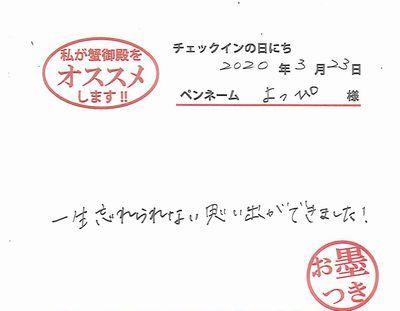 私が蟹御殿を
オススメ
します!!
チェックインの日にち
2020 年 3 月 23 日
ペンネーム よっぴ 様
一生忘れられない思い出ができました!
お墨
つき